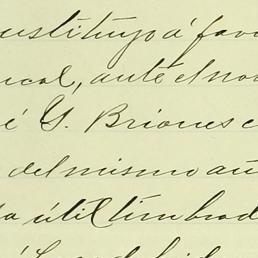 nstituyó á favo
ucal, ante el no
é G. Briones c
del mismo añ
a útil timbrad